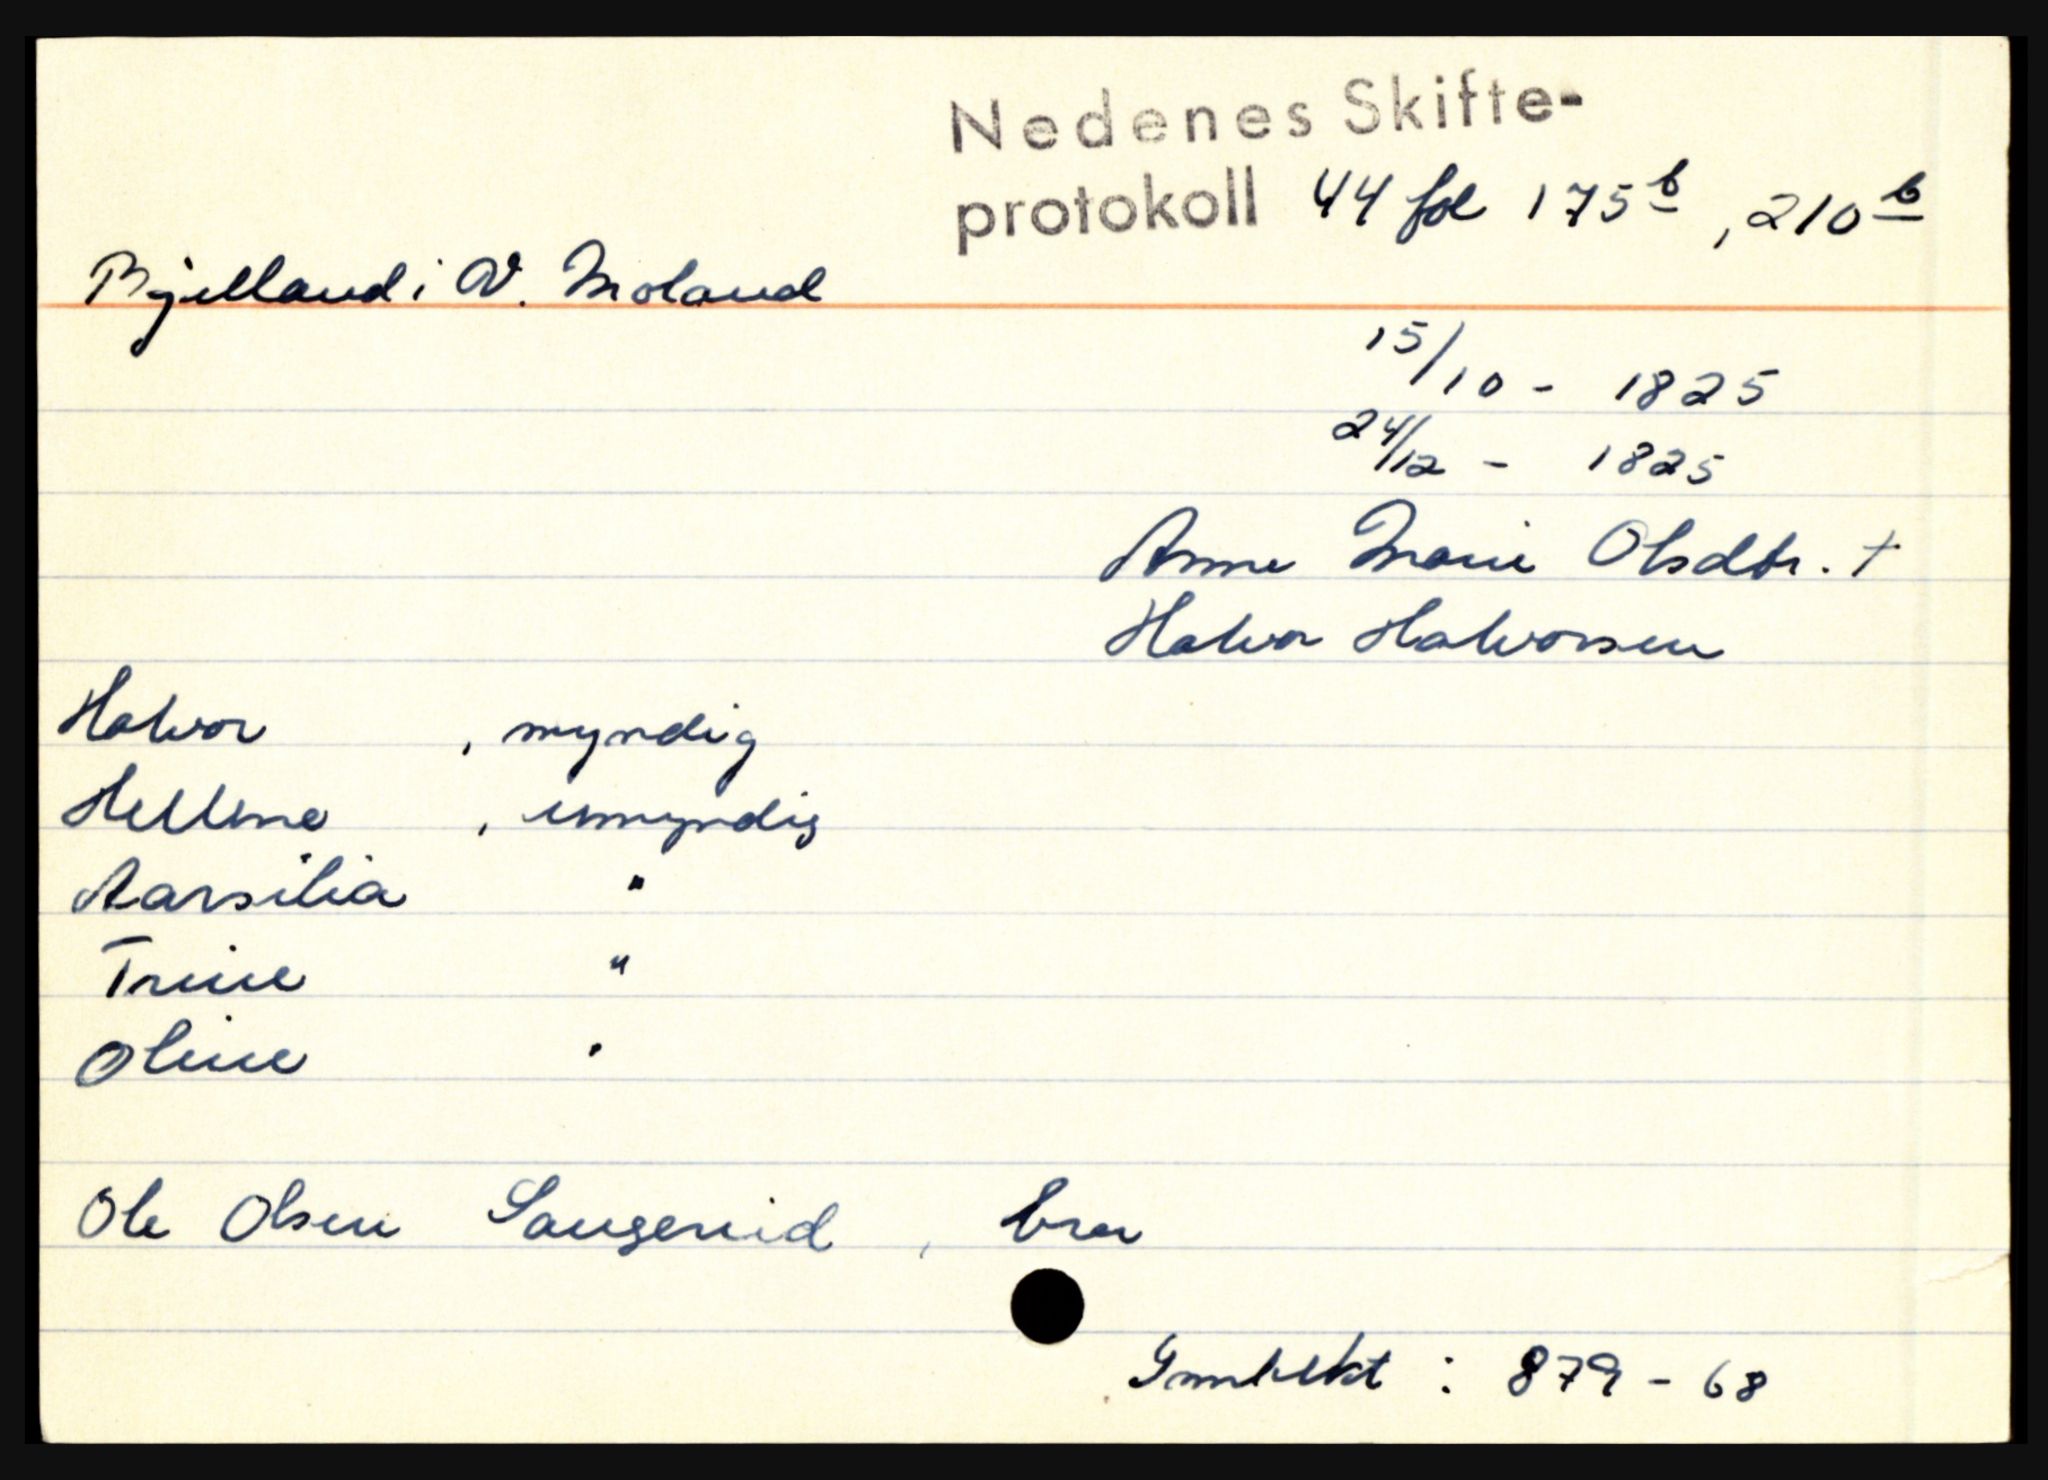 Nedenes Skifte-
protokoll 44 fol 175b, 210b
Bjelland i V. Moland
15/10 - 1825
24/12 - 1825
Anne Marie Olsdtr. +
Halvor Halvorsen
Halvor , myndig
Hellene , umyndig
Aarsilia "
Trine "
Oline "
Ole Olsen Saugerud , bror
Inntekt : 879 - 68